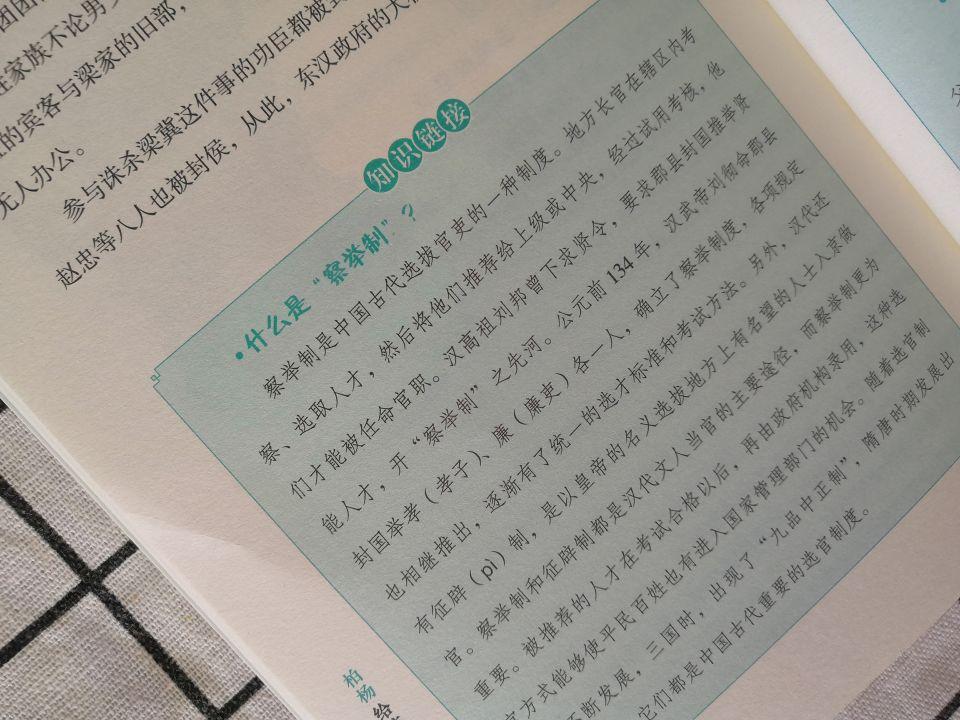 在家族不论男
的宾客与梁家的旧部，
无人办公。
参与诛杀梁冀这件事的功臣都被
赵忠等八人也被封侯，从此，东汉政府的大
知识链接
·什么是“察举制”？
察举制是中国古代选拔官吏的一种制度。地方长官在辖区内考
察、选取人才，然后将他们推荐给上级或中央，经过试用考核，他
们才能被任命官职。汉高祖刘邦曾下求贤令，要求郡县封国推举贤
能人才，开“察举制”之先河。公元前134年，汉武帝刘彻命郡县
封国举孝（孝子）、廉（廉吏）各一人，确立了察举制度，各项规定
也相继推出，逐渐有了统一的选才标准和考试方法。另外，汉代还
有征辟（pì）制，是以皇帝的名义选拔地方上有名望的人士入京做
官。察举制和征辟制都是汉代文人当官的主要途径，而察举制更为
重要。被推荐的人才在考试合格以后，再由政府机构录用，这种选
官方式能够使平民百姓也有进入国家管理部门的机会。随着选官制
不断发展，三国时，出现了“九品中正制”，隋唐时期发展出
它们都是中国古代重要的选官制度。
柏杨给
父